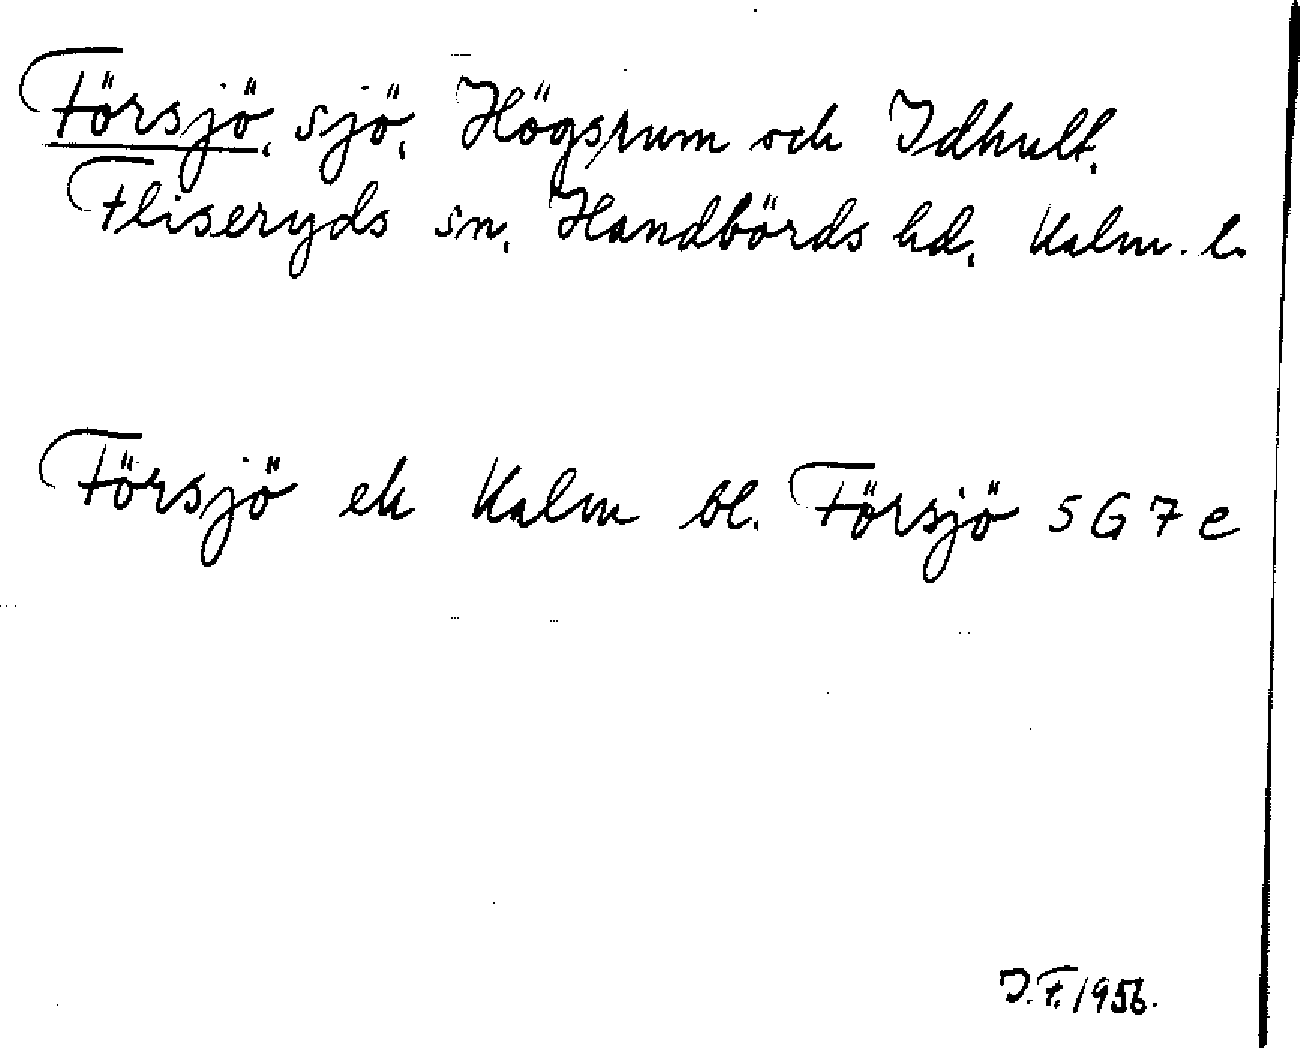 Försjö, sjö, Högsrum och Idhult,
Fliseryds sn, Handbörds hd, Kalm. l.
Försjö ek Kalm bl. Försjö 5 G 7 e
J.F. 1956.